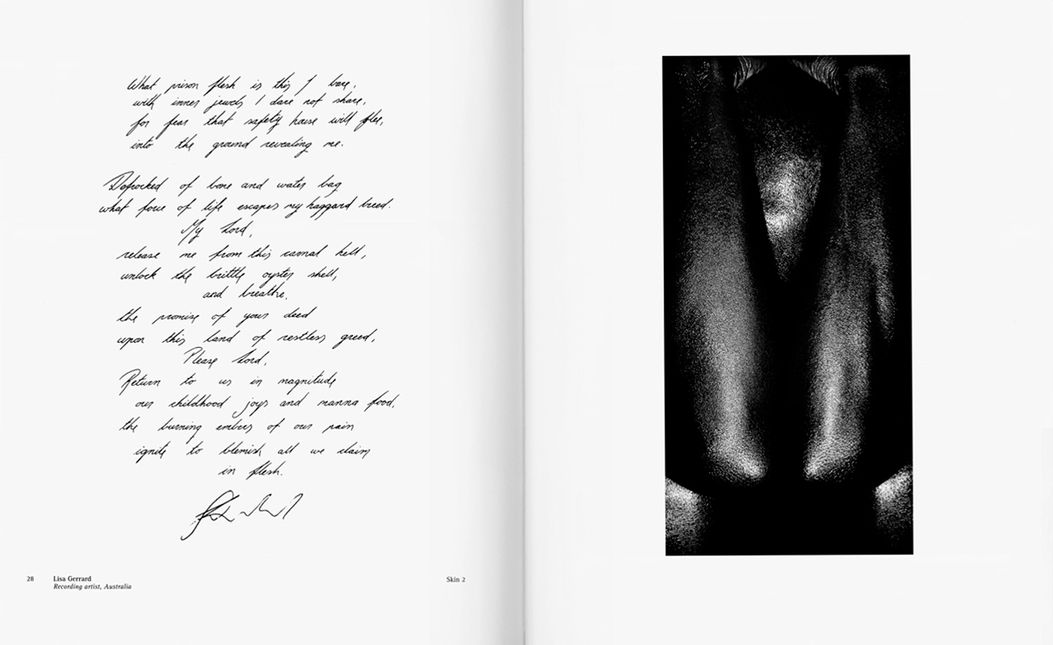 What prison flesh is this I bare,
with inner jewels I dare not share,
for fear that safety house will flee,
into the ground revealing me.
Defrocked of bone and water bag
what force of life escapes my haggard breed.
My Lord,
release me from this carnal hell,
unlock the brittle oyster shell,
and breathe.
the promise of your deed
upon this land of restless greed,
Please Lord,
Return to us in magnitude
our childhood joys and manna food,
the burning embers of our pain
ignite to blemish all we claim
in flesh.
28 Lisa Gerrard
Recording artist, Australia
Skin 2